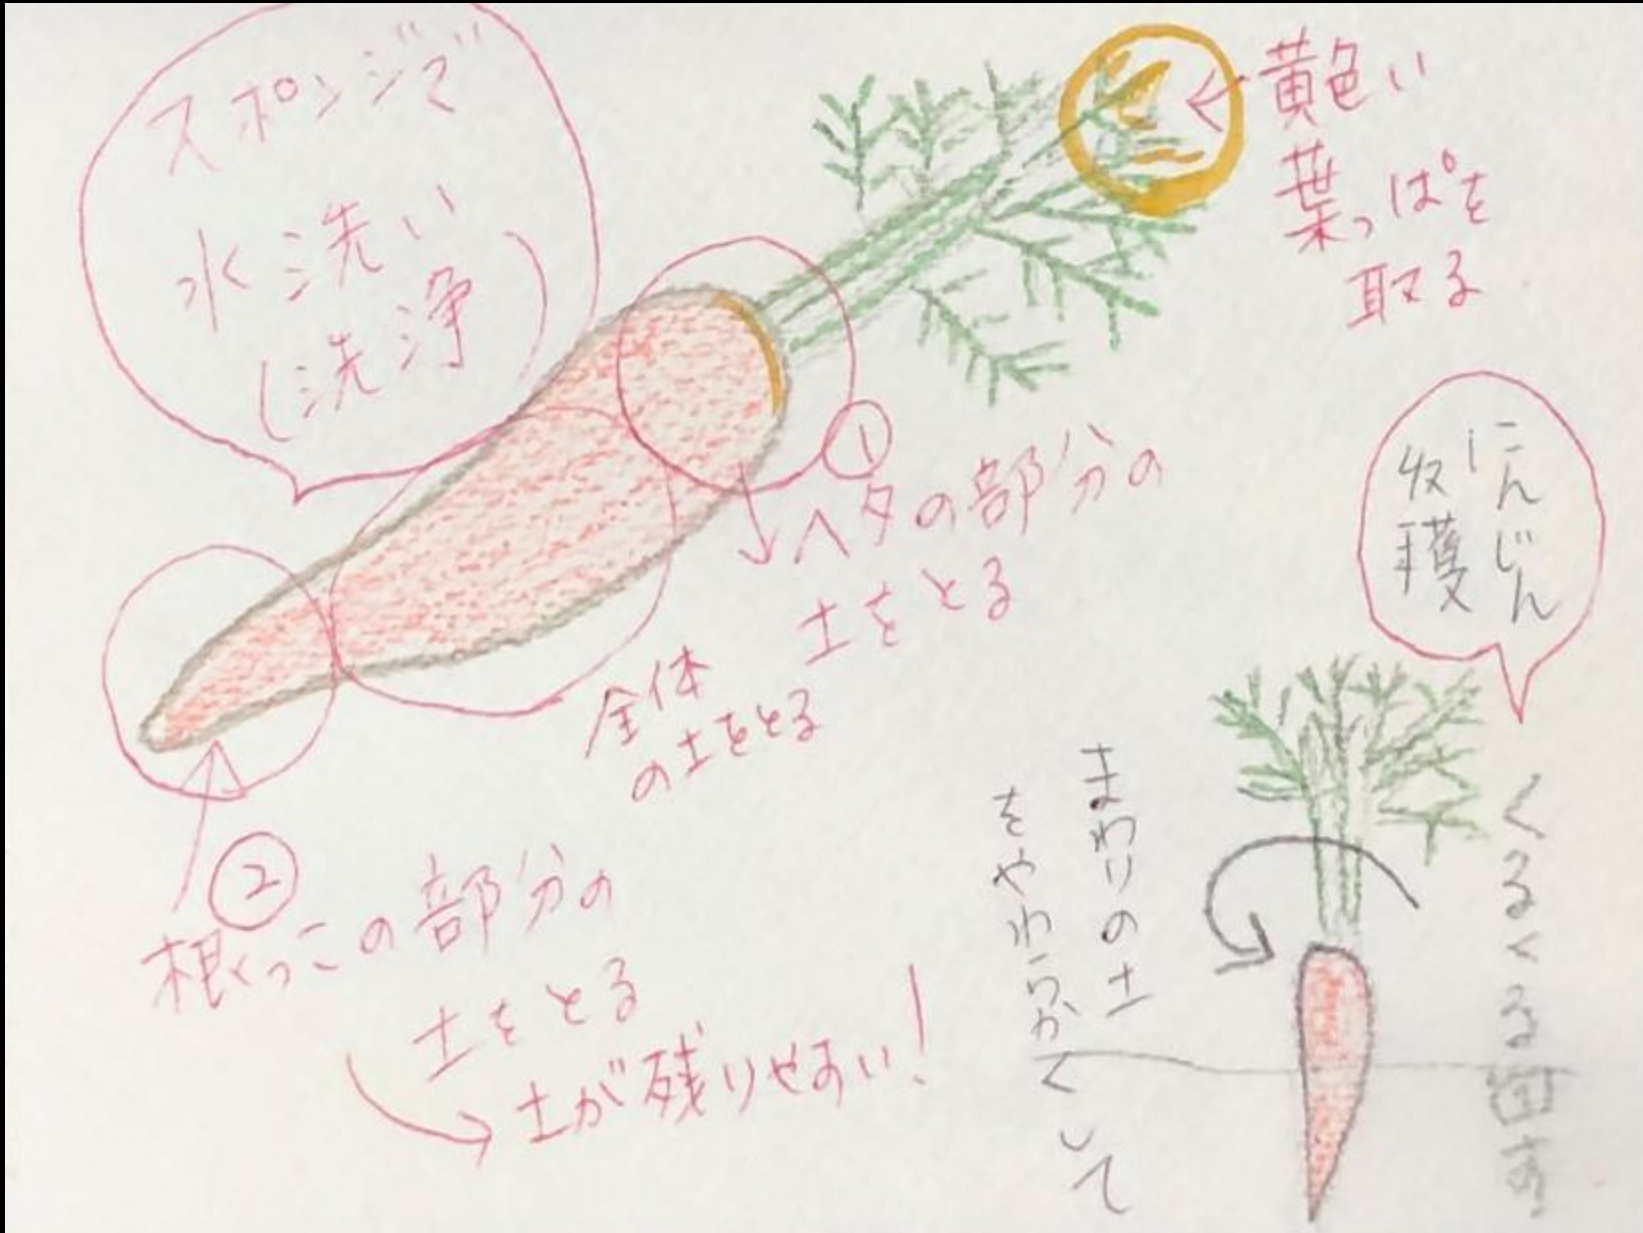 スポンジで
水洗い
(洗浄)
黄色い
葉っぱを
取る
①
ヘタの部分の
土をとる
全体
の土をとる
②
根っこの部分の
土をとる
土が残りやすい!
にんじん
収穫
くるくる回す
まわりの土
をやわらかくして